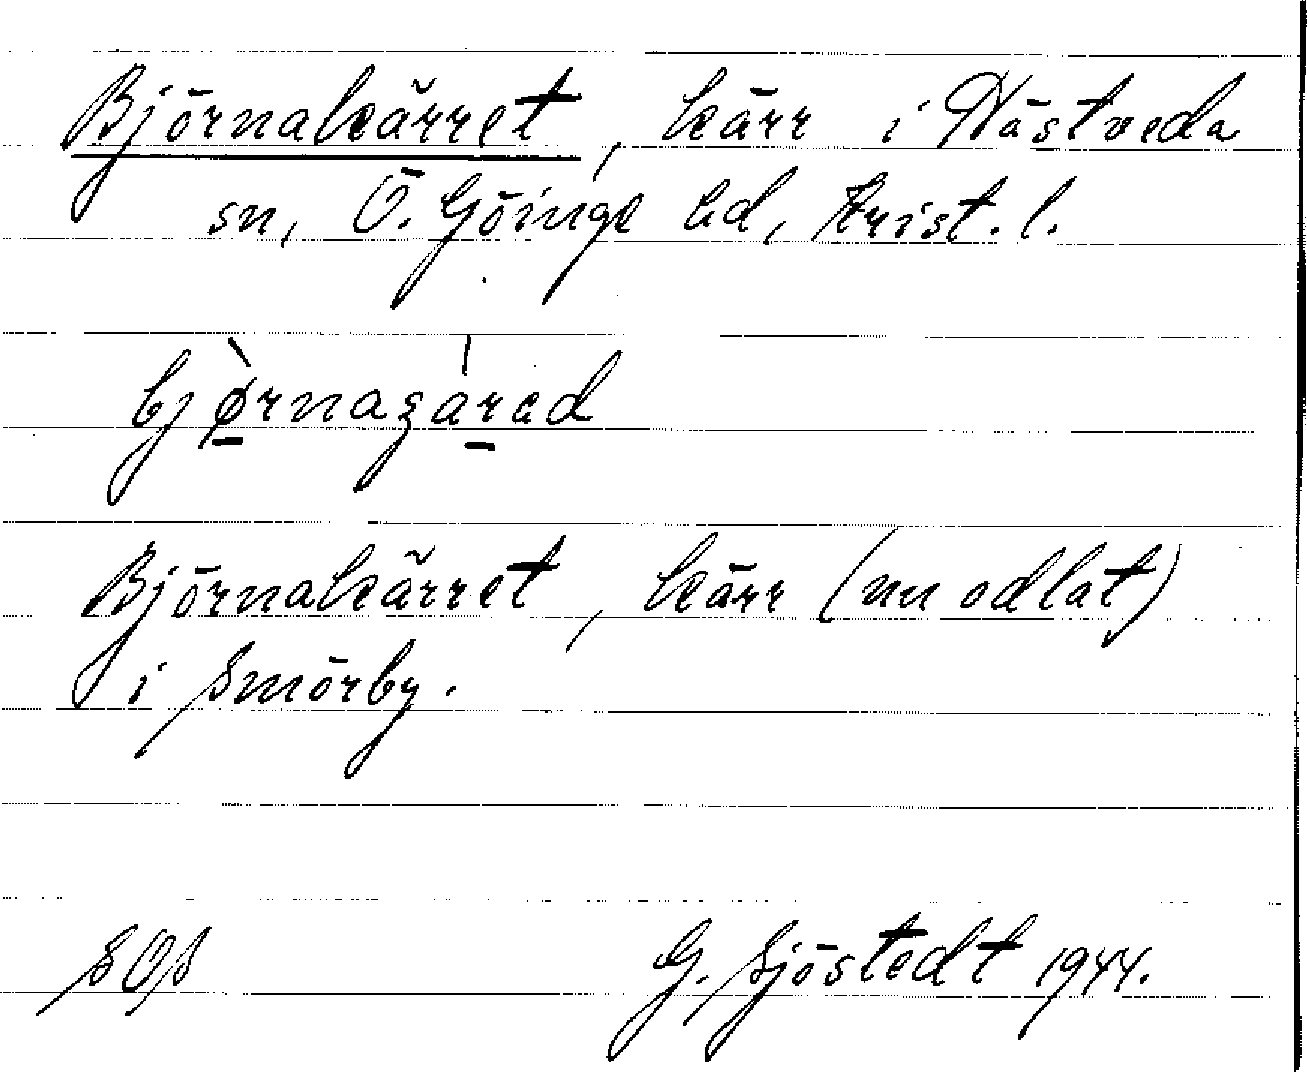 Björnakärret, kärr i Hästveda
sn, Ö. Göinge hd, Krist. l.
Björnakärret, kärr (nu odlat)
i Smörby.
SOS G. Sjöstedt 1944.